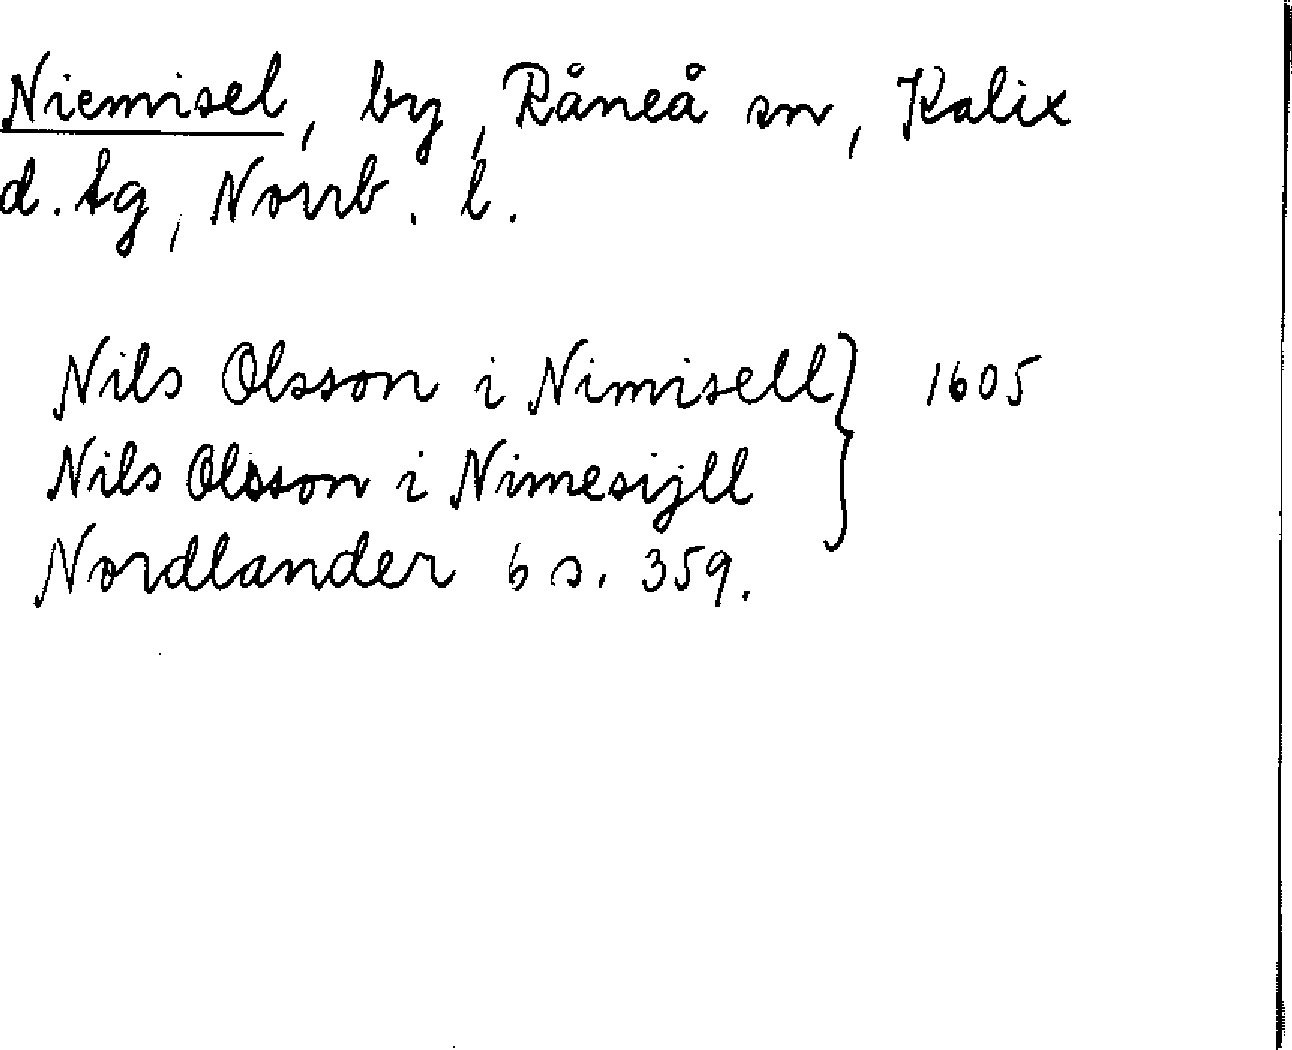 Niemisel, by, Råneå sn, Kalix
d. tg, Norrb. l.
Nils Olsson i Nimisell } 1605
Nils Olsson i Nimesijll
Nordlander 6 s. 359.